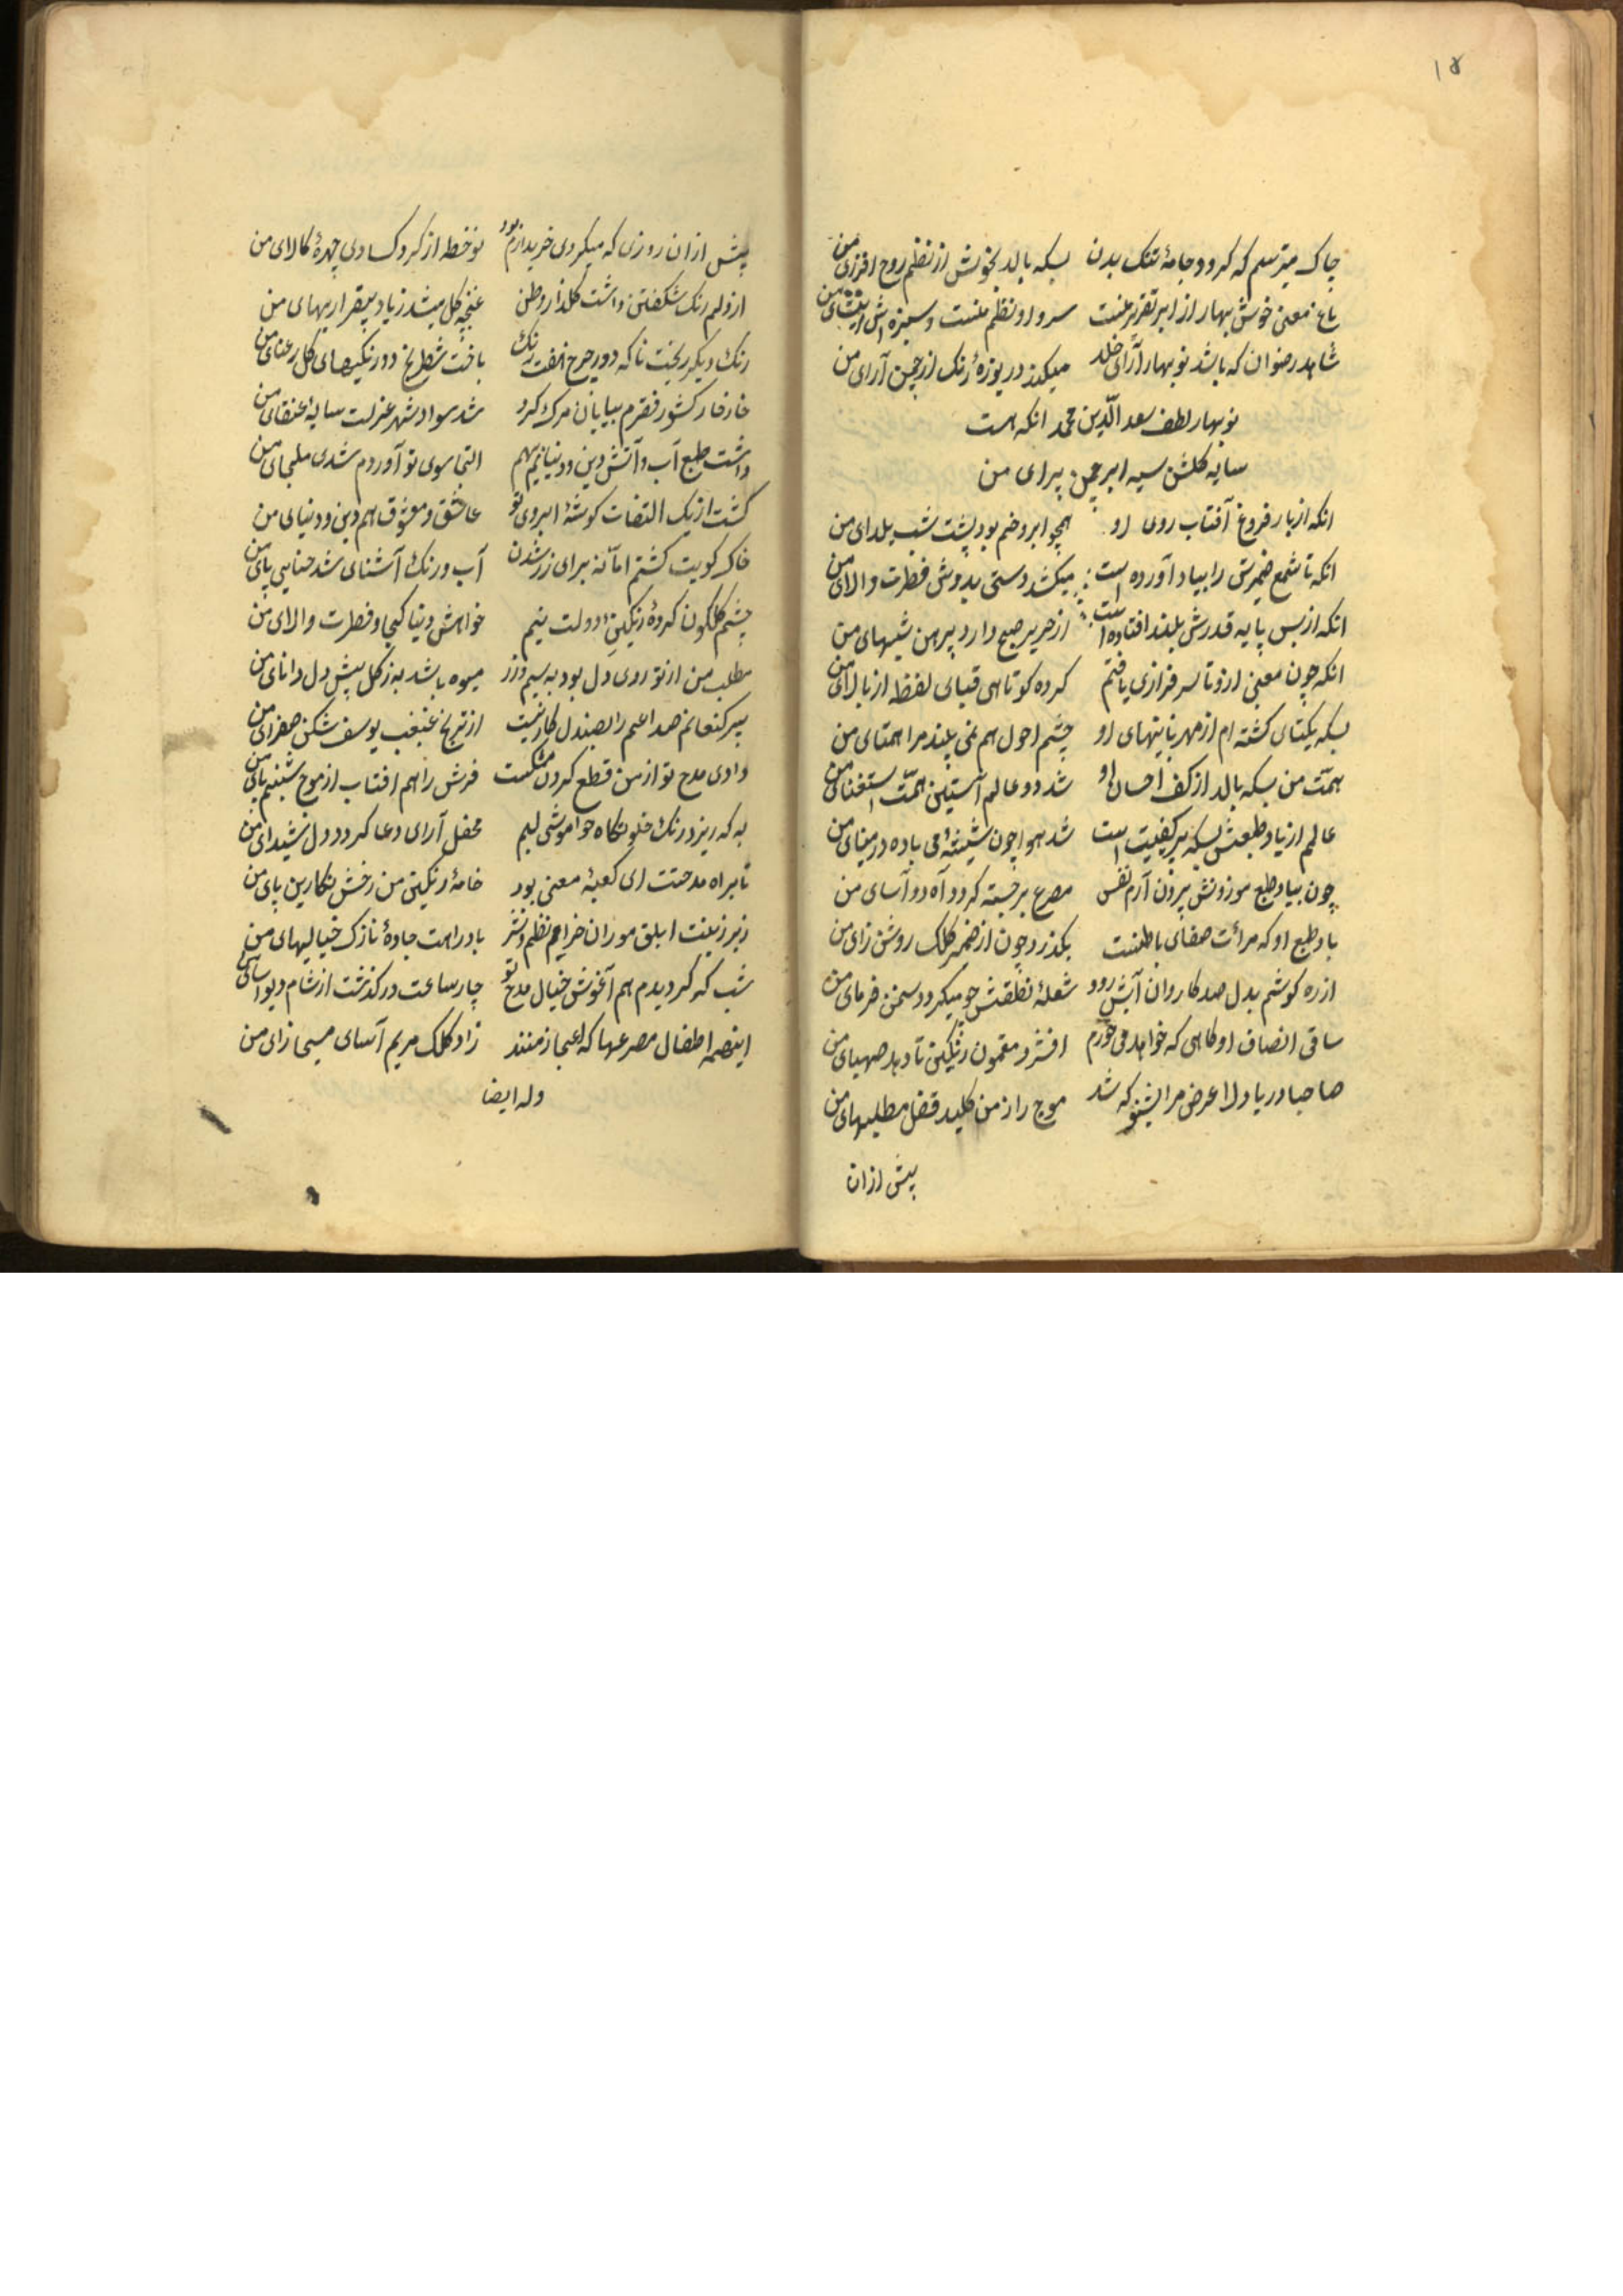 ۱۵
چاک میترسم که کردد جامهٔ تنک بدن بسکه بالد بخویش از نظم روح افزای من
باغ معنی خوش بهار از ابر تقریر منست سرو او نظم منست و سبزه اش انشای من
شاهد رضوان که باشد نوبهار آرای خلد میکند دریوزهٔ رنک از چمن آرای من
نوبهار لطف سعد الدّین محمد انکه هست
سایه کلشن سیه ابر چمن پیرای من
انکه از بار فروغ آفتاب روی او همچو ابرو خم بود پشت شب یلدای من
انکه تا شمع ضمیرش را بیاد آورده است میکشد دستی بدوش فطرت والای من
انکه از بس پایه قدرش بلند افتاده است از حریر صبح دارد پیرهن شبهای من
انکه چون معنی ازو تا سرفرازی یافتم کرده کوتاهی قبای لفظ از بالای من
بسکه یکتای کشته ام از مهربانیهای او چشم احول هم نمی بیند مرا همتای من
همّت من بسکه بالد از کف احسان او شد دو عالم آستین همّت استغنای من
عالم از یاد طبعش بسکه پر کیفیت است شد هوا چون شیشهٔ می باده در مینای من
چون بیاد طبع موزونش برون آرم نفس مصرع برجسته کردد آه دود آسای من
یاد طبع او که مرآت صفای باطنست بکذرد چون از ضمیر کلک روشن زای من
از ره کوشم بدل صد کاروان آتش رود شعلهٔ نطقش چو میکردد سخن فرمای من
ساقی انصاف او کاهی که خواهد می خورم افشرد مضمون رنکین تا دهد صهبای من
صاحبا دریا دلا عرض مرا بشنو که شد موج راز من کلید قفل مطلبهای من
پیش ازان
پیش ازان روزی که میکردی خریدارم بود نوخط از کرد کسادی چهرهٔ کالای من
از دلم رنک شکفتن داشت کلذار وطن غنچه کل میشد ز یاد بیقراریهای من
رنک دیکر ریخت ناکه دور چرخ هفت رنک باخت شطرنج دو رنکیهای کل رعنای من
خارخار کشور فقرم بیابان مرک کرد شد سواد شهر عزلت سایه عنقای من
داشت طبع آب و آتش دین و دنیایم بهم التجا سوی تو آوردم شدی ملجای من
کشت از یک التفات کوشهٔ ابروی تو عاشق و معشوق هم دین و دنیای من
خاک کویت کشتم امّا نه برای زر شدن آب و رنک آشنای شد حنایی پای من
چشم کلکون کردهٔ رنکین دولت نیم خواهش دنیا کجا و فطرت والای من
مطلب من از تو روی دل بود نه سیم و زر میوه باشد به ز کل پیش دل دانای من
پیر کنعانم صداعم را بصندل کار نیست از ترنج غبغب یوسف شکن صفرای من
وادی مدح تو از من قطع کردن مشکلست فرش راهم افتاب از موج شبنم پای من
به که ریزد رنک خلوتکاه خواموشی لبم محفل آرای دعا کردد دل شیدای من
تا براه مدحتت ای کعبهٔ معنی بود خامهٔ رنکین من رخش نکارین پای من
زیر زینت ابلق موران خرام نظم و نثر باد راهت جادهٔ نازک خیالیهای من
شب که کردیدم هم آغوش خیال مدح تو چار ساعت در کذشت از شام دیو آسای من
اینهمه اطفال مصرعها که اعجاز منند زاد کلک مریم آسای مسیحا زای من
وله ایضا